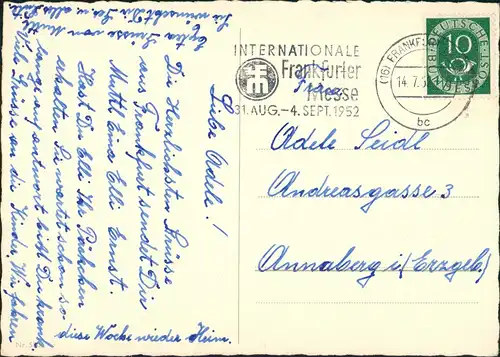 Liebe Adele!
Die Herzlichsten Grüsse
aus Frankfurt sendet Dir
Muttl Erna Elli Ernst.
Hast Du Elli Ihr Päckchen
erhalten Sie wartet schon so
lange auf antwort bist Du krank
Viele Grüsse an die Kinder. Wir fahren
diese Woche wieder Heim.
Grüsse von Muttl
Sie wünscht Dir
INTERNATIONALE
Frankfurter
Messe
31. AUG. – 4. SEPT. 1952
Frau
(16) FRANKF
14.7.5
bc
DEUTSCHE BUNDESPOST
10
Adele Seidl
Andreasgasse 3
Annaberg i/(Erzgeb.)
Nr.